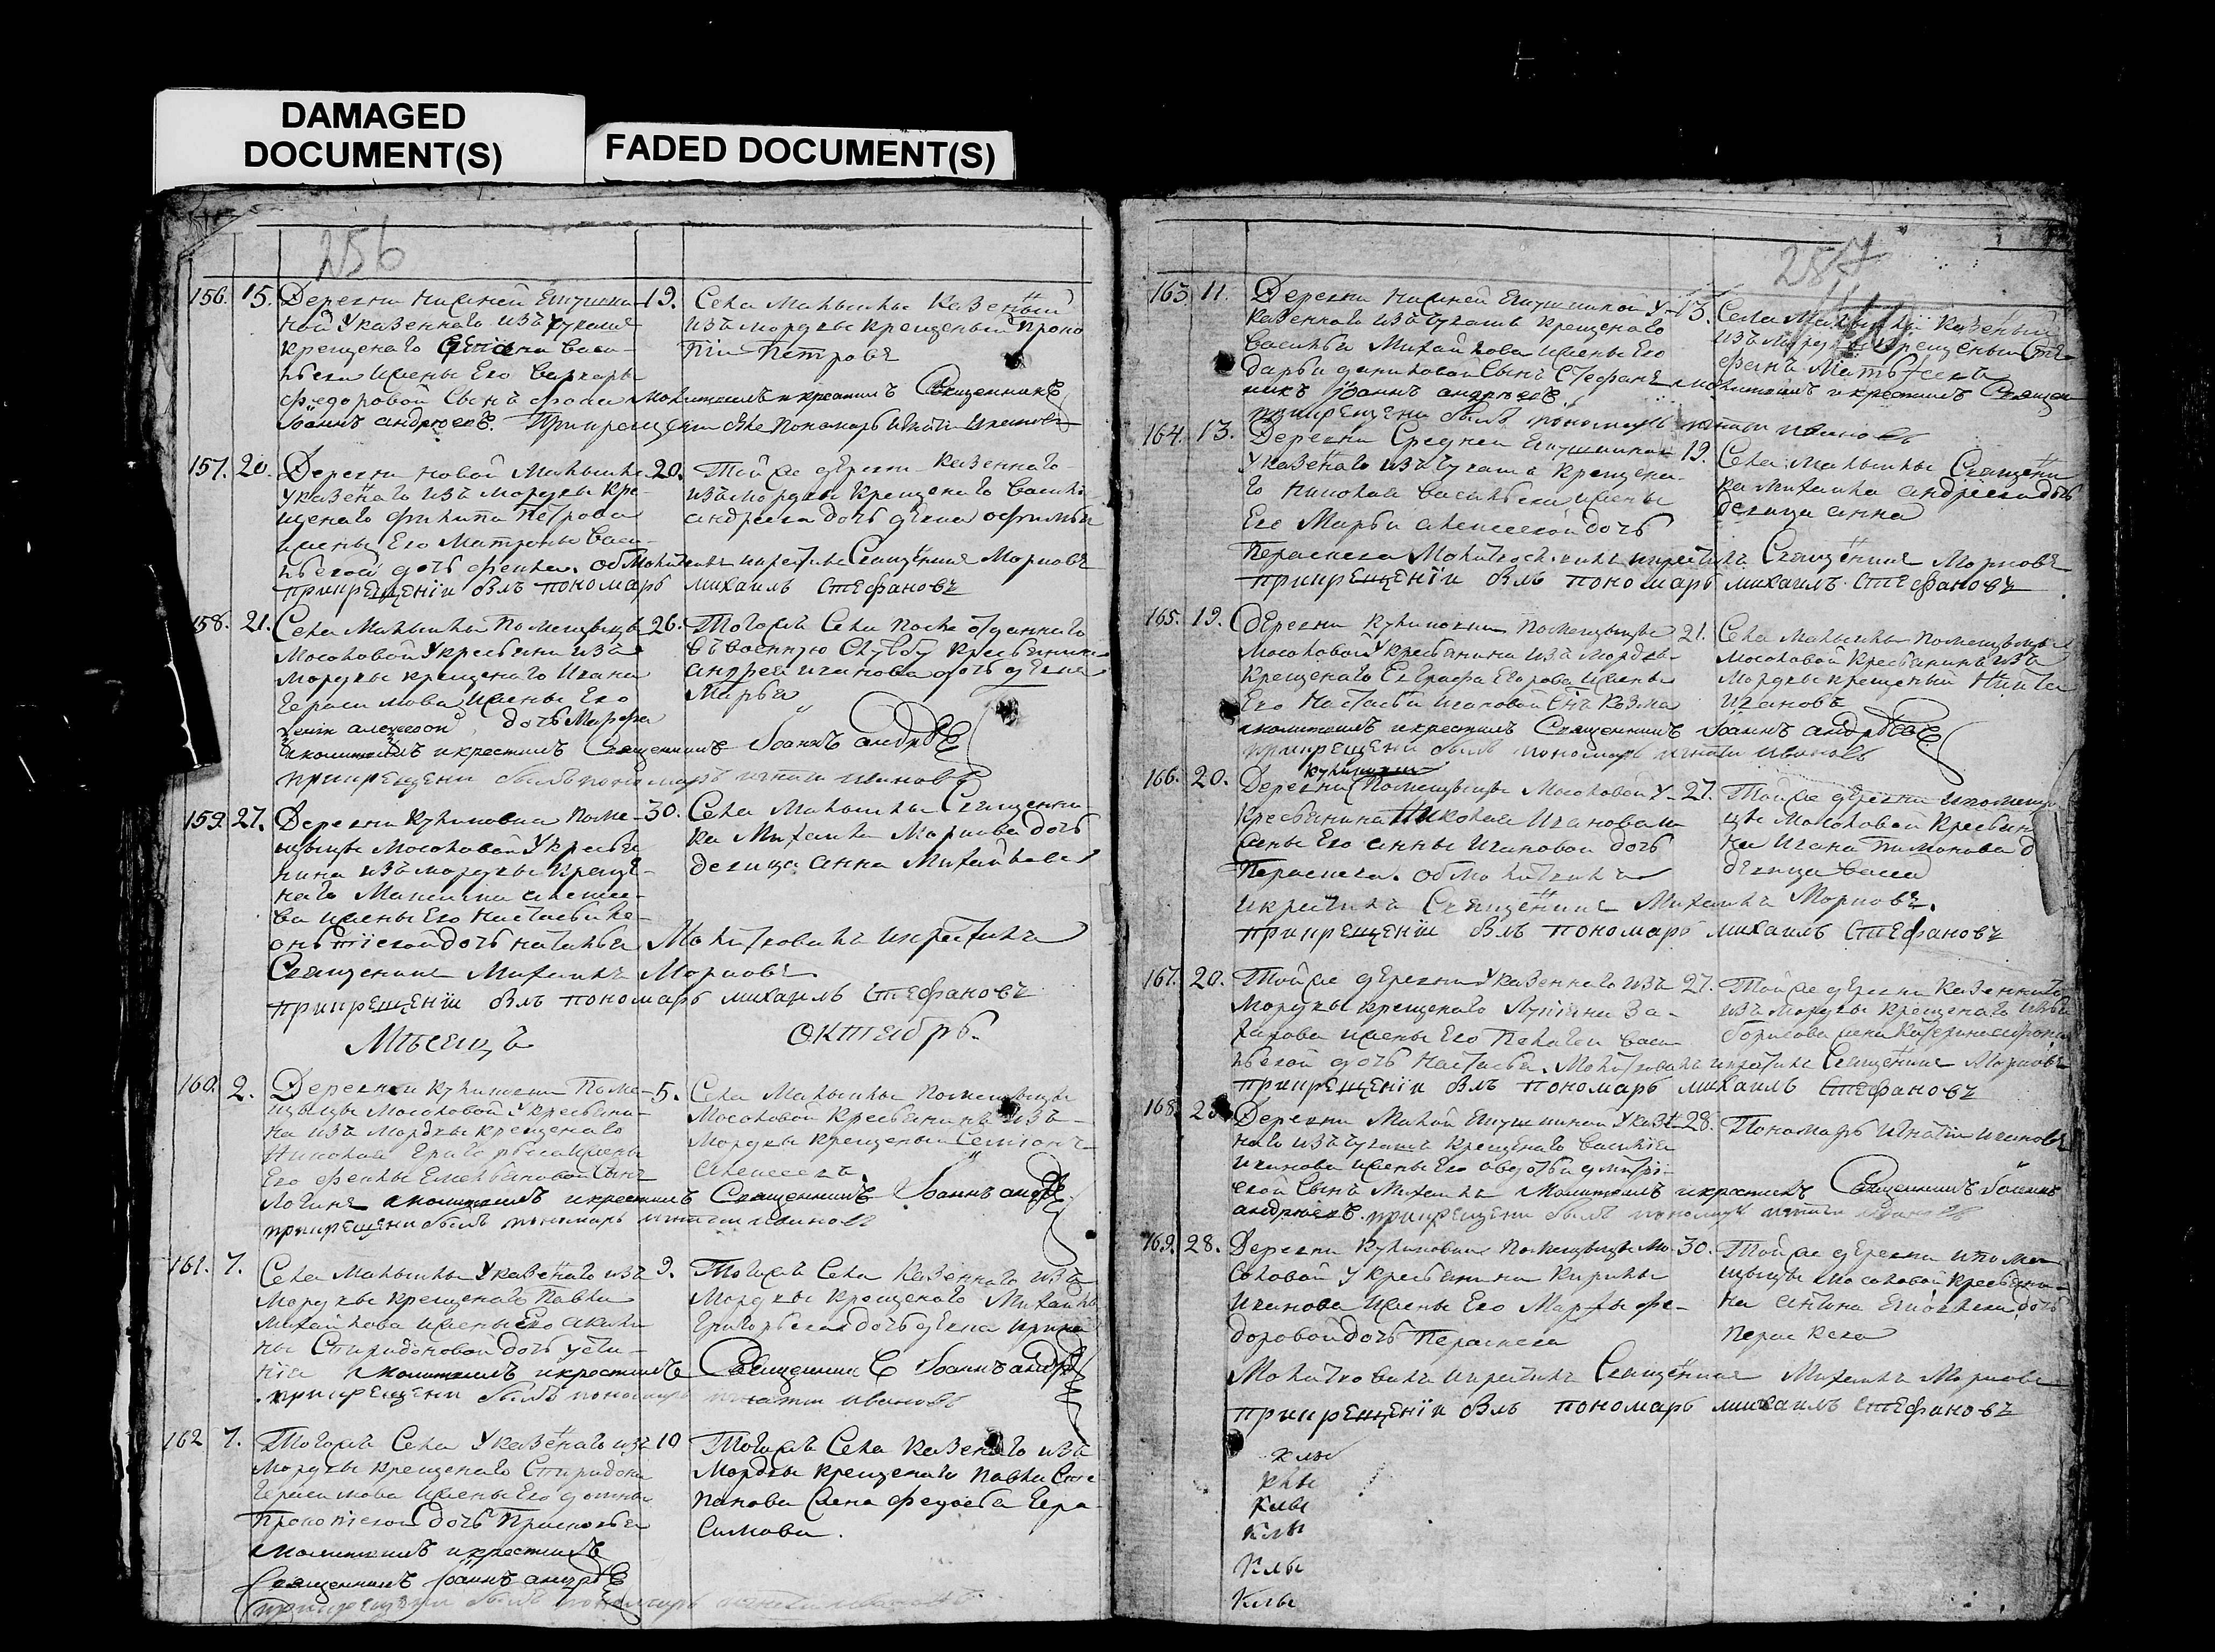 DAMAGED
DOCUMENT(S)
FADED DOCUMENT(S)
256
156. 15. Деревни Нижней
ной у казенного изъ чувашъ
крещенаго Василь
ева жены его Варвары
Федоровой сынъ Фома молитвилъ и крестилъ Священникъ
Іоаннъ Андреевъ. При крещении былъ пономарь Игнатій Ивановъ
19. Села Малычки казенный
изъ мордвы крещеный Проко
пій Петровъ
157. 20. Деревни Новой Малычки
у казеннаго изъ мордвы кре-
щенаго Филипа Петрова
жены его Матрены Васи-
льевой дочь Фекла. обмолитвилъ и крестилъ Священникъ Морновъ
при крещеніи былъ пономарь михаилъ Стефановъ
20. Той же деревни казеннаго
изъ мордвы крещенаго Василья
Андреева дочь девка Офимья
158. 21. Села Малычки помещицы
Мосоловой у кресьянина изъ
мордвы крещенаго Ивана
Герасимова жены его
дочь Марфа
молитвилъ и крестилъ Священникъ Іоаннъ Андреевъ
при крещени былъ пономарь игнатіи ивановъ
26. Тогожъ села после отданнаго
въ военную службу кресьянина
Андрея Иванова дочь девка
Марья
159. 27. Деревни Куликовки поме-
щицы Мосоловой у кресья
нина изъ мордвы креще-
наго Максима Алексе-
ва жены его Настасьи Ле-
онтіевой дочь Наталья Молитвовалъ и крестилъ
Священникъ Михаилъ Морновъ
при крещеніи былъ пономарь михаилъ Стефановъ
30. Села Малычки Священни
ка Михаила Морнова дочь
девица Анна Михайлова
Мѣсецъ Октябрь.
160. 2. Деревни Куликовки поме-
щицы Мосоловой у кресьяни-
на изъ мордвы крещенаго
Николая Григорьева жены
его Феклы Емельяновой сынъ
Логинъ молитвилъ и крестилъ Священникъ Іоаннъ Андреевъ
при крещени былъ пономарь игнатіи ивановъ
5. Села Малычки помещицы
Мосоловой кресьянинъ изъ
мордвы крещеный Семіонъ
Алексеевъ
161. 7. Села Малычки у казеннаго изъ
мордвы крещенаго Павла
Михайлова жены его Акили
ны Спиридоновой дочь Усти-
нія молитвилъ и крестилъ Священникъ Іоаннъ Андреевъ
при крещени былъ пономарь игнатіи ивановъ
9. Тогожъ села казеннаго изъ
мордвы крещенаго Михаила
Григорьева дочь девка Ирина
162 7. Тогожъ села у казеннаго изъ
мордвы крещенаго Спиридона
Герасимова жены его Домны
Прокопіевой дочь Прасковья
молитвилъ и крестилъ
Священникъ Іоаннъ Андреевъ
при крещеніи былъ пономарь игнатіи ивановъ
10 Тогожъ села казеннаго изъ
мордвы крещенаго Павла Сте
панова жена Федосья Гера-
симова.
257
163. 11. Деревни Нижней у
казеннаго изъ чувашъ крещенаго
Василья Михайлова жены его
Дарьи Даниловой сынъ Стефанъ молитвилъ и крестилъ Священ
никъ Іоаннъ Андреевъ.
при крещени былъ пономарь игнатіи ивановъ
13. Села Малычки казенный
изъ мордвы крещеный Сте
фанъ Матвеевъ
164. 13. Деревни Средней
у казеннаго изъ чувашъ крещена-
го Николая Васильева жены
его Марьи Алексеевой дочь
Параскева Молитвовалъ и крестилъ Священникъ Морновъ
при крещеніи былъ пономарь михаилъ Стефановъ
19. Села Малычки Священни
ка Михаила Андреева дочь
девица Анна
165. 19. Деревни Куликовки помещицы
Мосоловой у кресьянина изъ мордвы
крещенаго Евграфа Егорова жены
его Настасьи Ивановой сынъ Козма
молитвилъ и крестилъ Священникъ Іоаннъ Андреевъ
при крещени былъ пономарь игнатіи ивановъ
21. Села Малычки помещицы
Мосоловой кресьянинъ изъ
мордвы крещеный Никита
Ивановъ
166. 20. Деревни Куликовки помещицы Мосоловой у
кресьянина Николая Иванова
жены его Анны Ивановой дочь
Параскева. обмолитвилъ
и крестилъ Священникъ Михаилъ Морновъ.
при крещеніи былъ пономарь михаилъ Стефановъ
27. Той же деревни и помещи
цы Мосоловой кресьяни
на Ивана Пимонова
девица Васса
167. 20. Той же деревни у казеннаго изъ
мордвы крещенаго Лукіяна За-
харова жены его Пелагеи Васи
льевой дочь Настасья. Молитвовалъ и крестилъ Священникъ Морновъ
при крещеніи былъ пономарь михаилъ Стефановъ
27. Той же деревни казеннаго
изъ мордвы крещенаго
Борисова жена Катерина
168. Деревни Малой у казен
наго изъ чувашъ крещенаго Василія
Иванова жены его Авдотьи Дмитрі-
евой сынъ Михаилъ молитвилъ и крестилъ Священникъ Іоаннъ
Андреевъ. при крещени былъ пономарь игнатіи ивановъ
28. Пономарь Игнатіи Ивановъ
169. 28. Деревни Куликовки помещицы Мо-
соловой у кресьянина Кирилы
Иванова жены его Марфы Фе-
доровой дочь Параскева
Молитвовалъ и крестилъ Священникъ Михаилъ Морновъ
при крещеніи былъ пономарь михаилъ Стефановъ
30. Той же деревни и поме
щицы Мосоловой кресьяни-
на дочь
Параскева